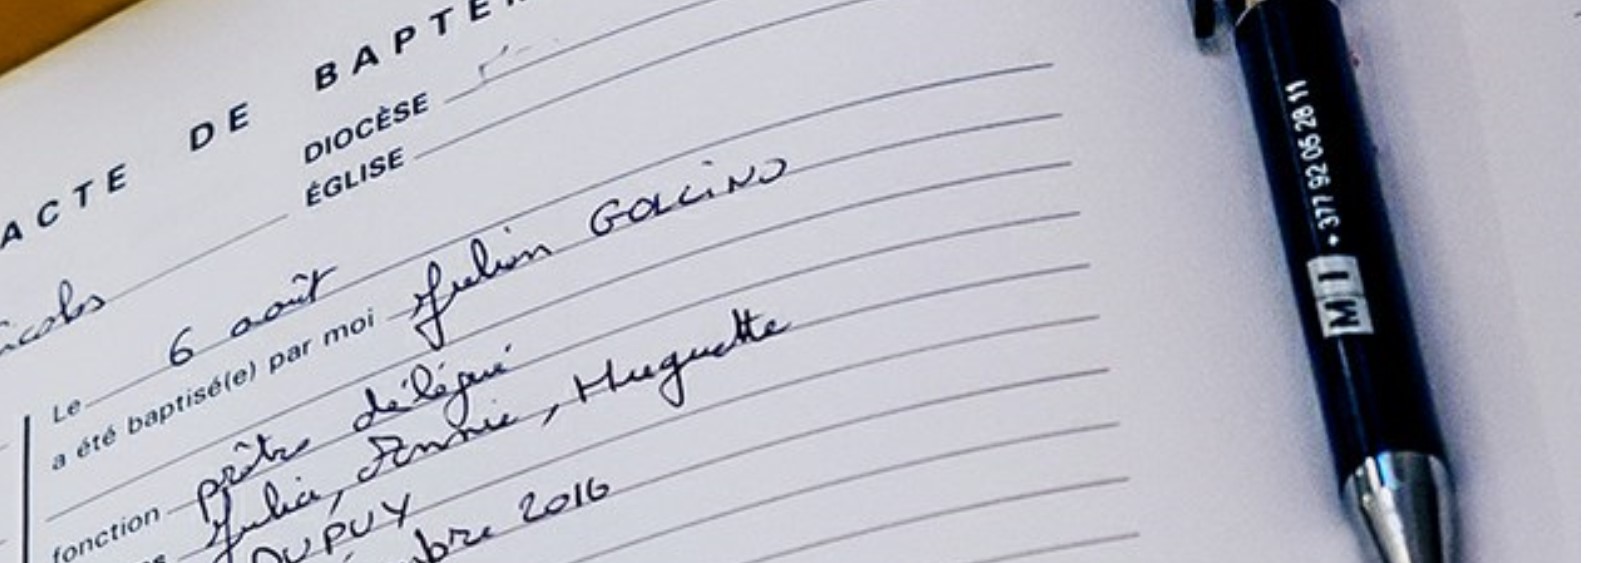 ACTE DE BAPTE
DIOCÈSE
ÉGLISE
Le 6 août
a été baptisé(e) par moi Julien GOLLINO
fonction prêtre délégué
Julia, Annie, Huguette
DUPUY
mbre 2016
+377 92 05 28 11
MI